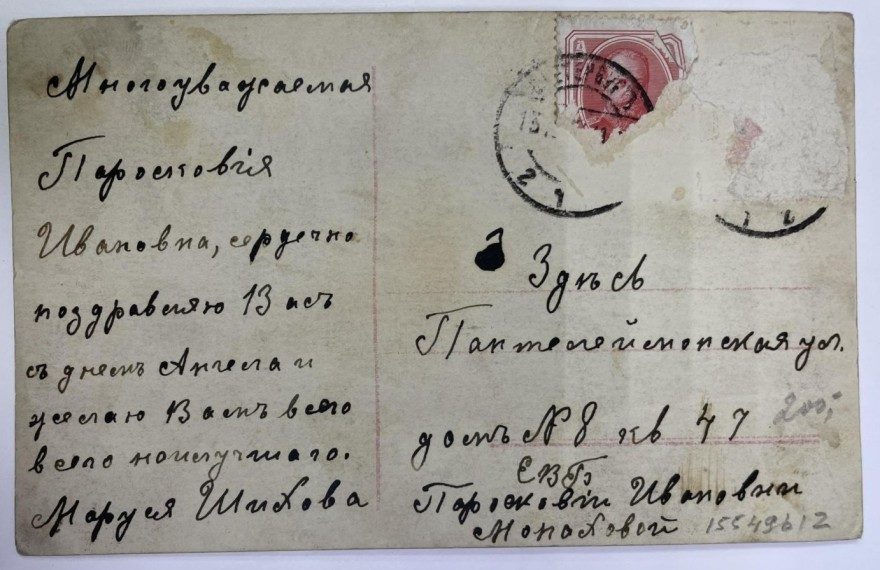 Многоуважаемая
Паросковія
Ивановна, сердечно
поздравляю Васъ
съ днемъ Ангела и
желаю Вамъ всего
всего наилучшаго.
Маруся Шихова
13
2 1
Здѣсь
Пантелеймонская ул.
домъ № 8 кв 47
200,-
ЕВБ
Паросковіи Ивановни
Монаховой
1554912